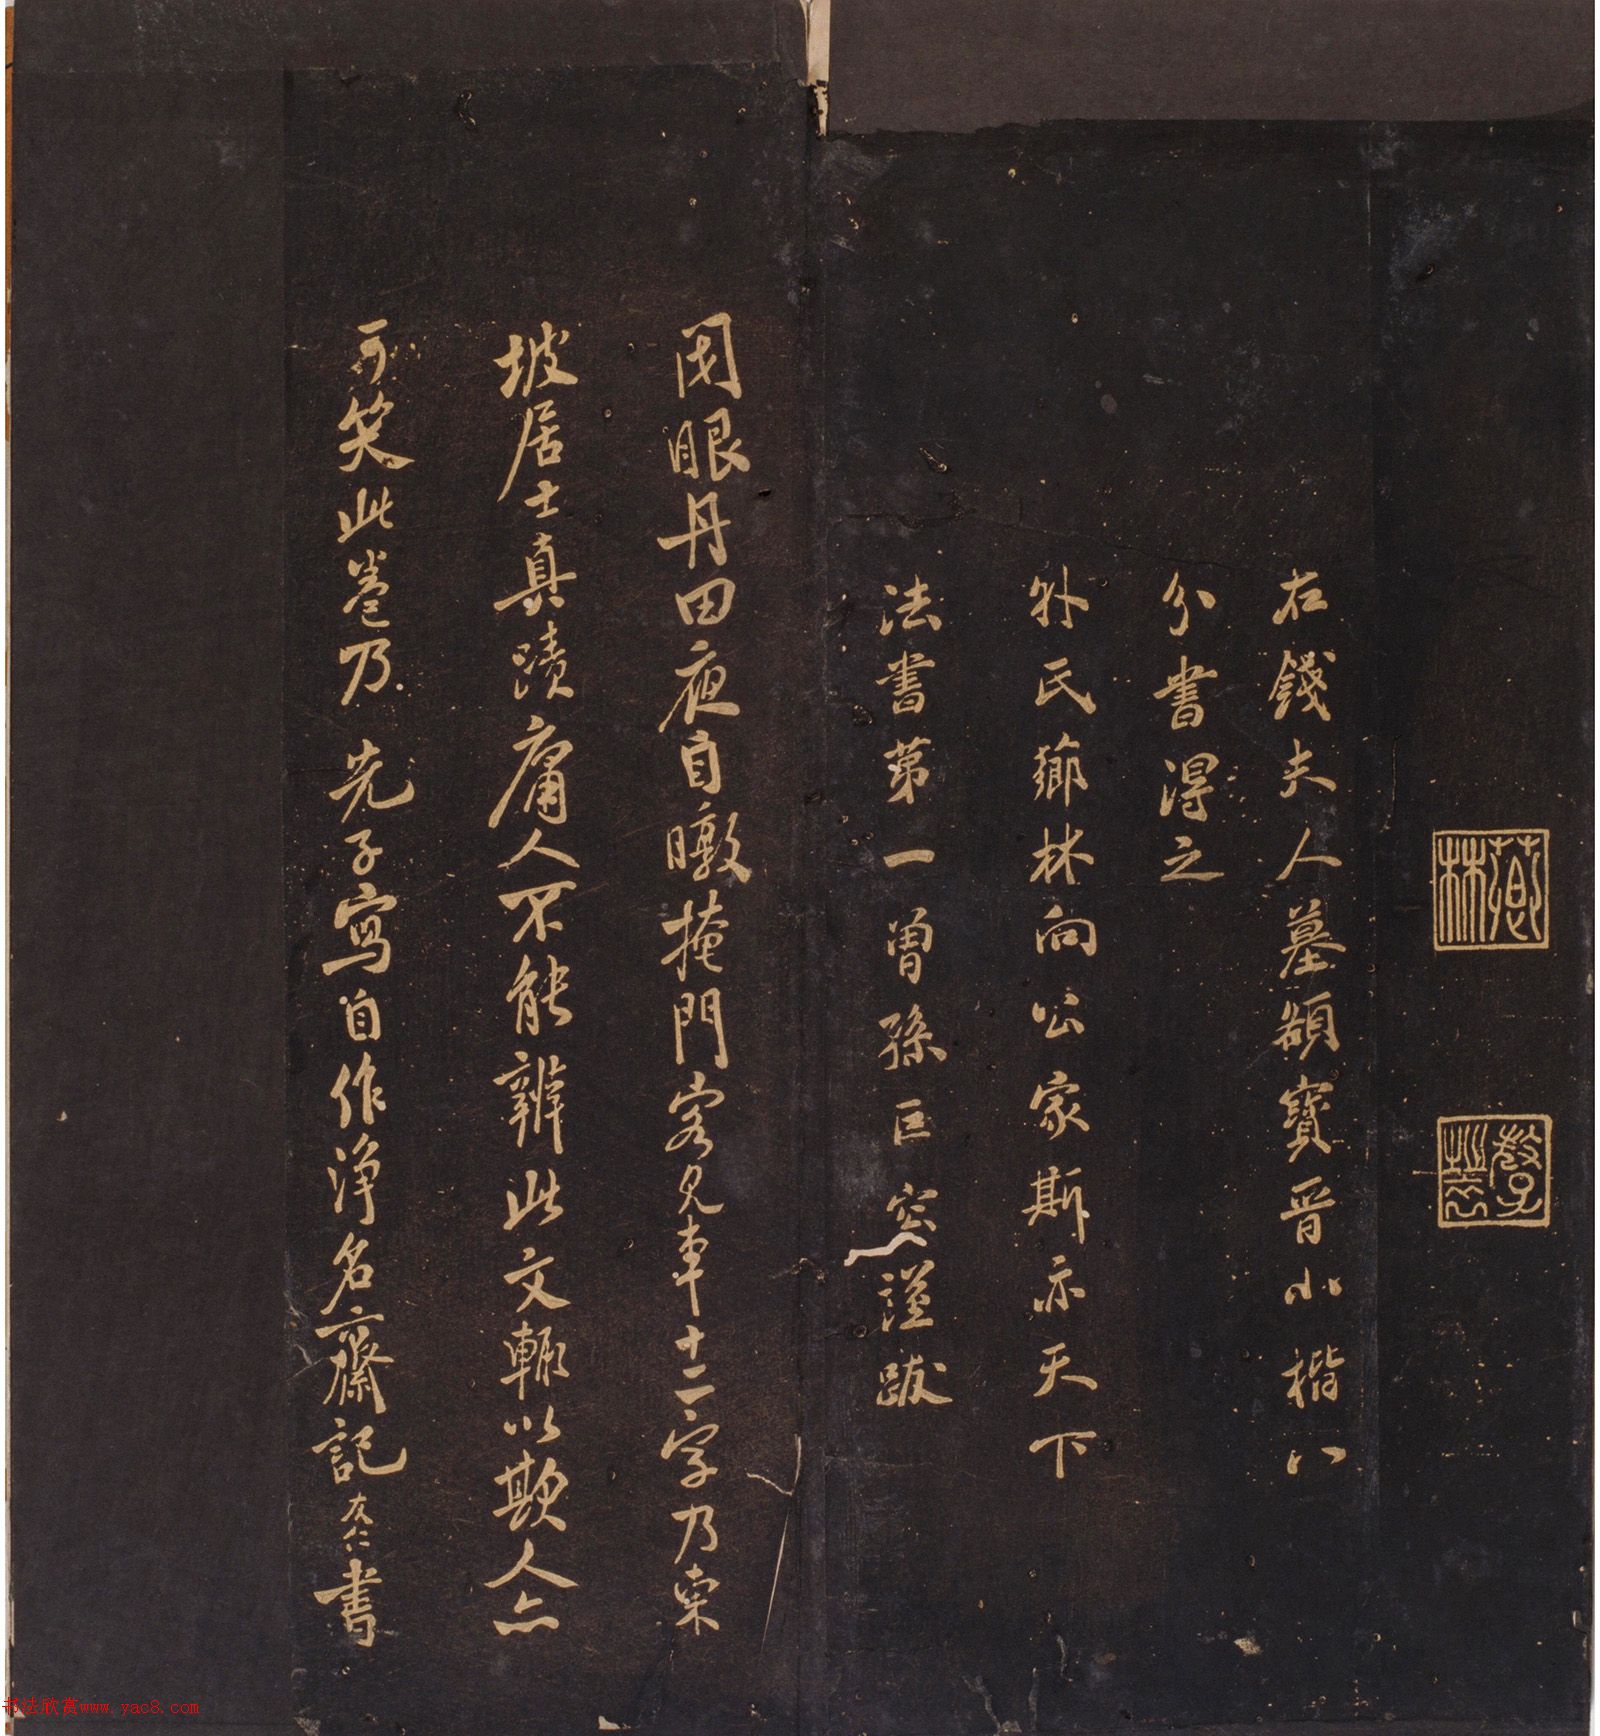 薌林
右錢夫人墓額寶晉小楷八
分書得之
外氏薌林向公家斯亦天下
法書第一曾孫巨容謹跋
閉眼丹田夜自暾掩門客見車十二字乃東
坡居士真蹟庸人不能辨此文輒以欺人亦
可笑此卷乃先子寫自作淨名齋記友仁書
书法欣赏www.yac8.com